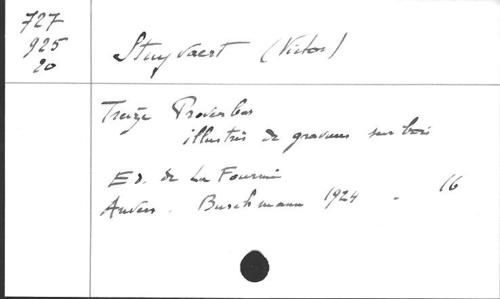 727
925
20
Stuyvaert (Victor)
Treize Proverbes
illustrés de gravures sur bois
Ed. de La Fourmi
Anvers. Buschmann 1924 - 16